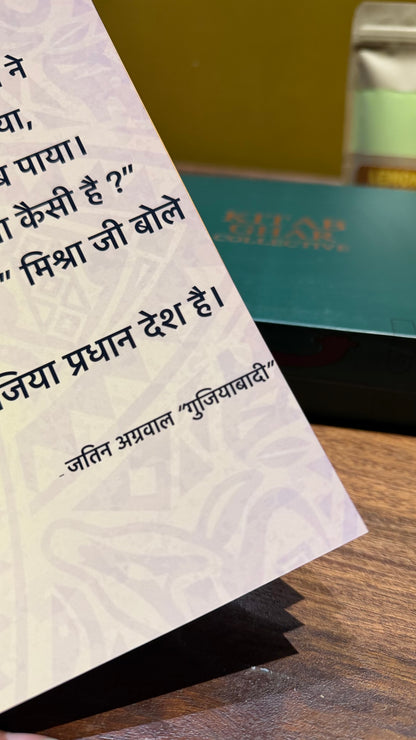 ने
पाया।
कैसी है ?”
” मिश्रा जी बोले
प्रधान देश है।
- जतिन अग्रवाल “गुजियाबादी”
KITAB
GHAR
COLLECTIVE